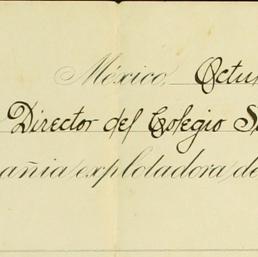 México, Octu
Director del Colegio S
añia explotadora de